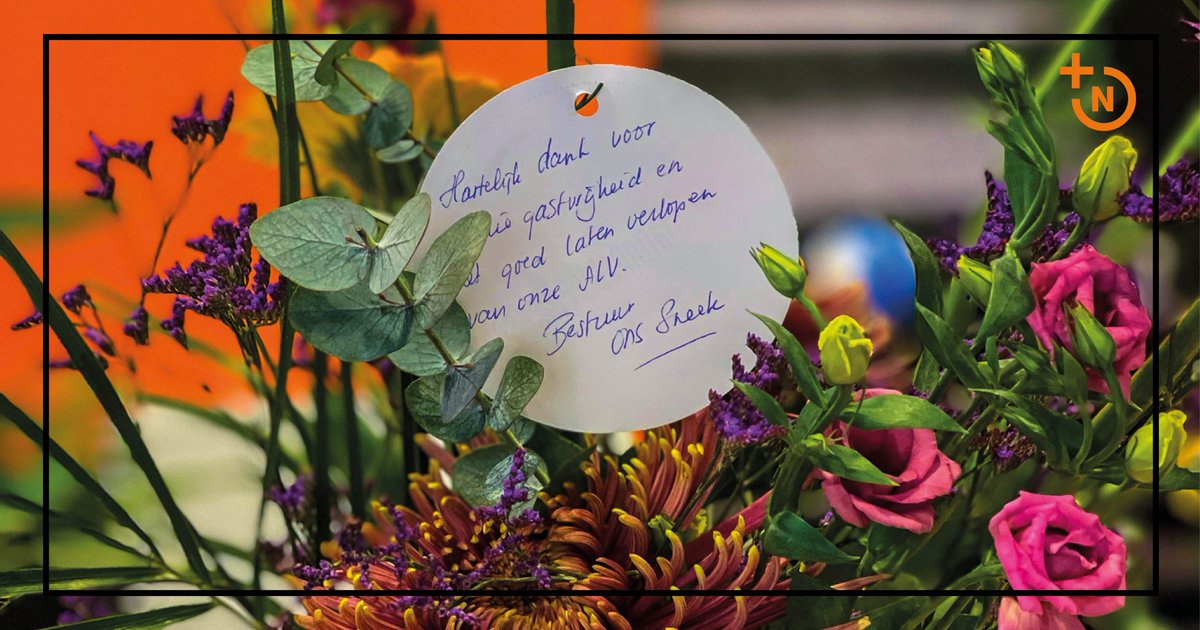 Hartelijk dank voor
gastvrijheid en
goed laten verlopen
van onze ALV.
Bestuur
Ons Sneek
N